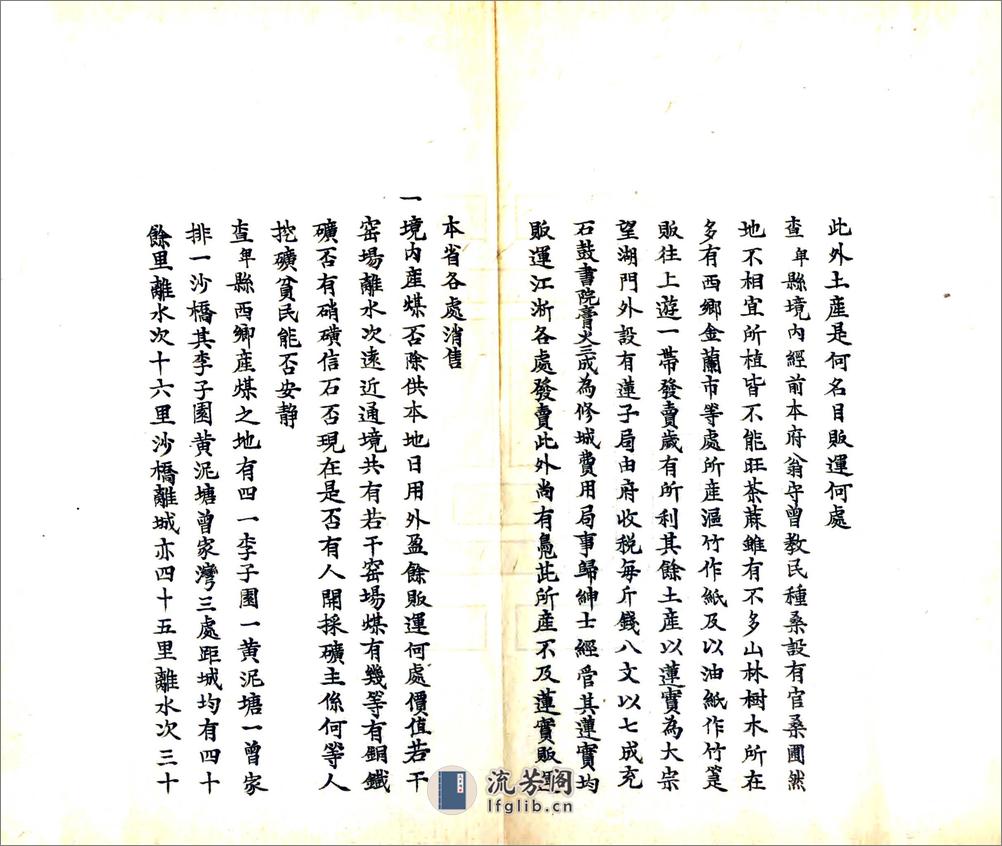 此外土産是何名目販運何處
查卑縣境內經前本府翁守曾教民種桑設有官桑圃然
地不相宜所植皆不能旺茶蔴雖有不多山林樹木所在
多有西鄉金蘭市等處所産漚竹作紙及以油紙作竹篁
販往上遊一帶發賣歲有所利其餘土産以蓮實為大宗
望湖門外設有蓮子局由府收税每斤錢八文以七成充
石鼓書院膏火三成為修城費用局事歸紳士經管其蓮實均
販運江浙各處發賣此外尚有鳧茈所産不及蓮實販運
本省各處消售
一境內産煤否除供本地日用外盈餘販運何處價值若干
窑場離水次遠近通境共有若干窑場煤有幾等有銅鐵
礦否有硝磺信石否現在是否有人開採礦主係何等人
挖礦貧民能否安静
查卑縣西鄉産煤之地有四一李子園一黄泥塘一曾家
排一沙橋其李子園黄泥塘曾家灣三處距城均有四十
餘里離水次十六里沙橋離城亦四十五里離水次三十
流芳阁
lfglib.cn